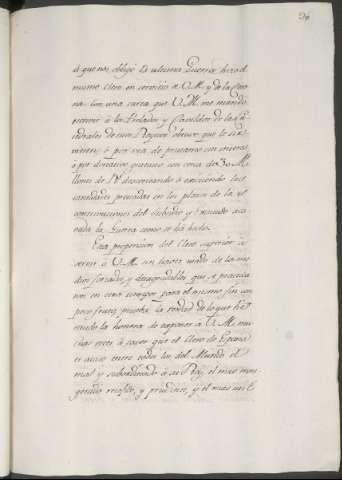 á que nos obligó la ultima Guerra hizo el
mismo Clero en servicio a V.M. y de la Coro
na. Con una carta que V.M. me mandó
escribir á los Prelados y Cavildos de las Ca
thedrales de estos Reynos obtuvo que le sir
viesen, ó por via de prestamo sin intereses
ó por donativo gratuito con cerca de 30 Mi
llones de r.^s descontando ó exigiendo las
cantidades prestadas en los plazos de las
contribuciones del Subsidio y Escusado aca
bada la Guerra como se ha hecho.
Esta propension del Clero superior á
servir á V.M. sin haver usado de los me
dios forzados y desagradables que se practica
ron en otros tiempos para el mismo fin con
poco fruto, prueba la verdad de lo que he te
nido la honrra de exponer a V.M. mu
chas veces á saver que el Clero de España
es acaso entre todos los del Mundo el
mas y subordinado á su Rey, el mas mori
gerado recojido, y prudente, y el mas util